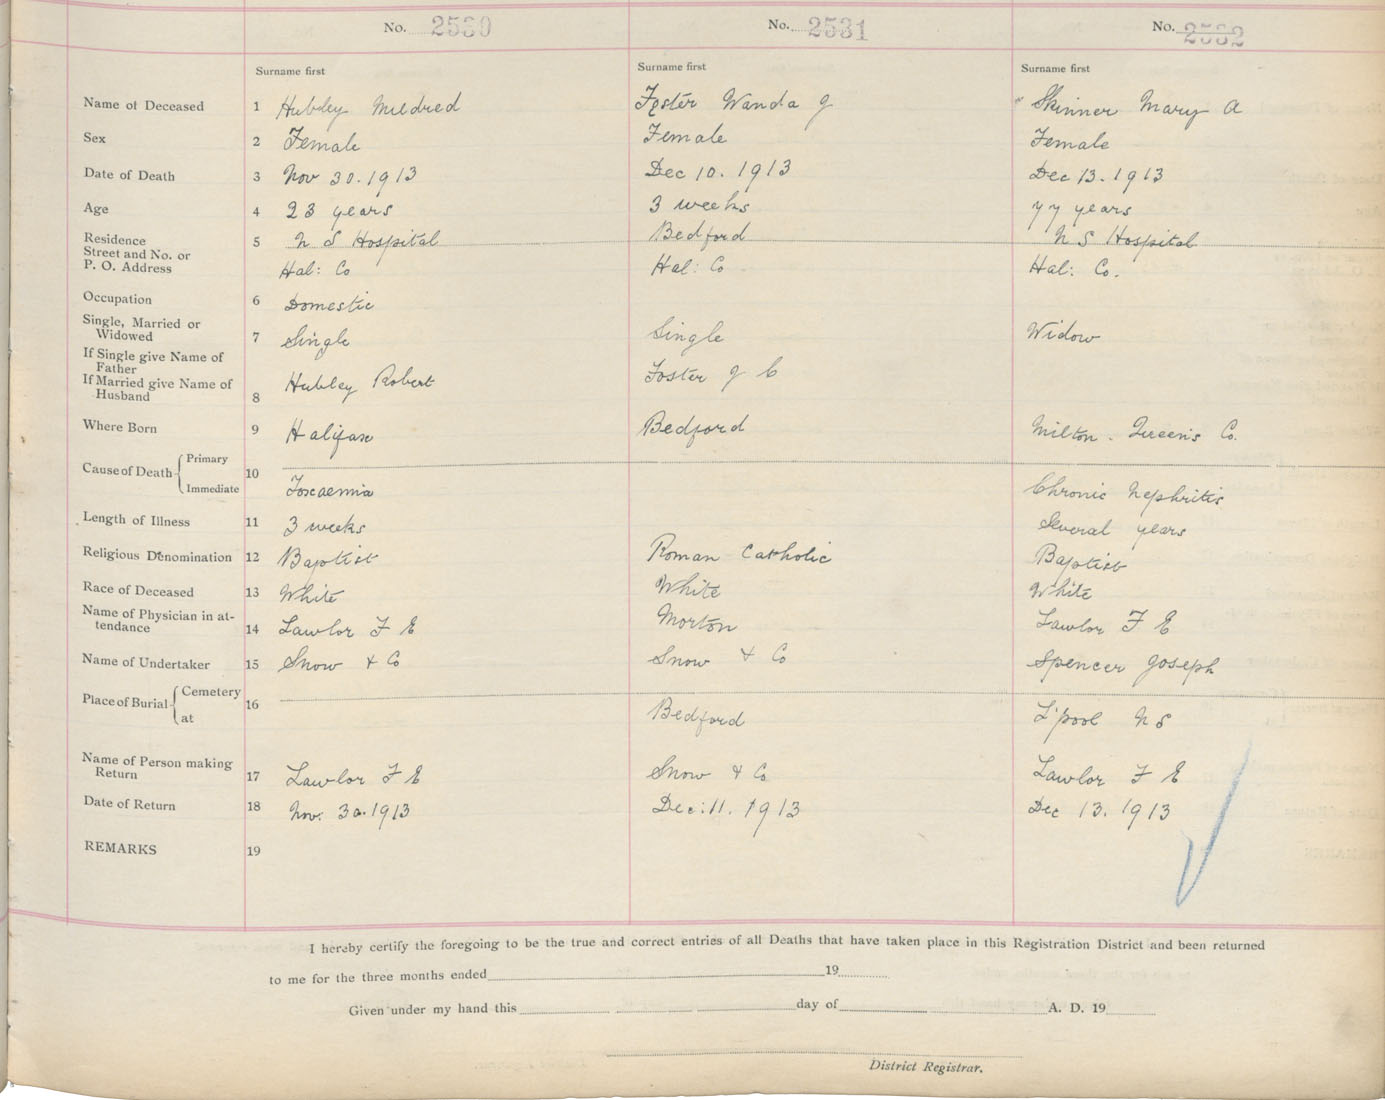 No. 2530 No. 2531 No. 2532
Surname first Surname first Surname first
Name of Deceased 1 Hubley Mildred Foster Wanda J Skinner Mary A
Sex 2 Female Female Female
Date of Death 3 Nov 30. 1913 Dec 10. 1913 Dec 13. 1913
Age 4 23 years 3 weeks 77 years
Residence 5 N S Hospital Bedford N S Hospital
Street and No. or
P. O. Address Hal: Co Hal: Co Hal: Co.
Occupation 6 Domestic
Single, Married or
Widowed 7 Single Single Widow
If Single give Name of
Father
If Married give Name of Hubley Robert Foster J C
Husband 8
Where Born 9 Halifax Bedford Milton. Queens Co.
Cause of Death Primary 10
Immediate Toxaemia Chronic Nephritis
Length of Illness 11 3 weeks Several years
Religious Denomination 12 Baptist Roman Catholic Baptist
Race of Deceased 13 White White White
Name of Physician in at-
tendance 14 Lawlor F E Morton Lawlor F E
Name of Undertaker 15 Snow & Co Snow & Co Spencer Joseph
Place of Burial Cemetery 16
at Bedford L'pool N S
Name of Person making
Return 17 Lawlor F E Snow & Co Lawlor F E
Date of Return 18 Nov. 30. 1913 Dec: 11. 1913 Dec 13. 1913
REMARKS 19
I hereby certify the foregoing to be the true and correct entries of all Deaths that have taken place in this Registration District and been returned
to me for the three months ended 19
Given under my hand this day of A. D. 19
District Registrar.